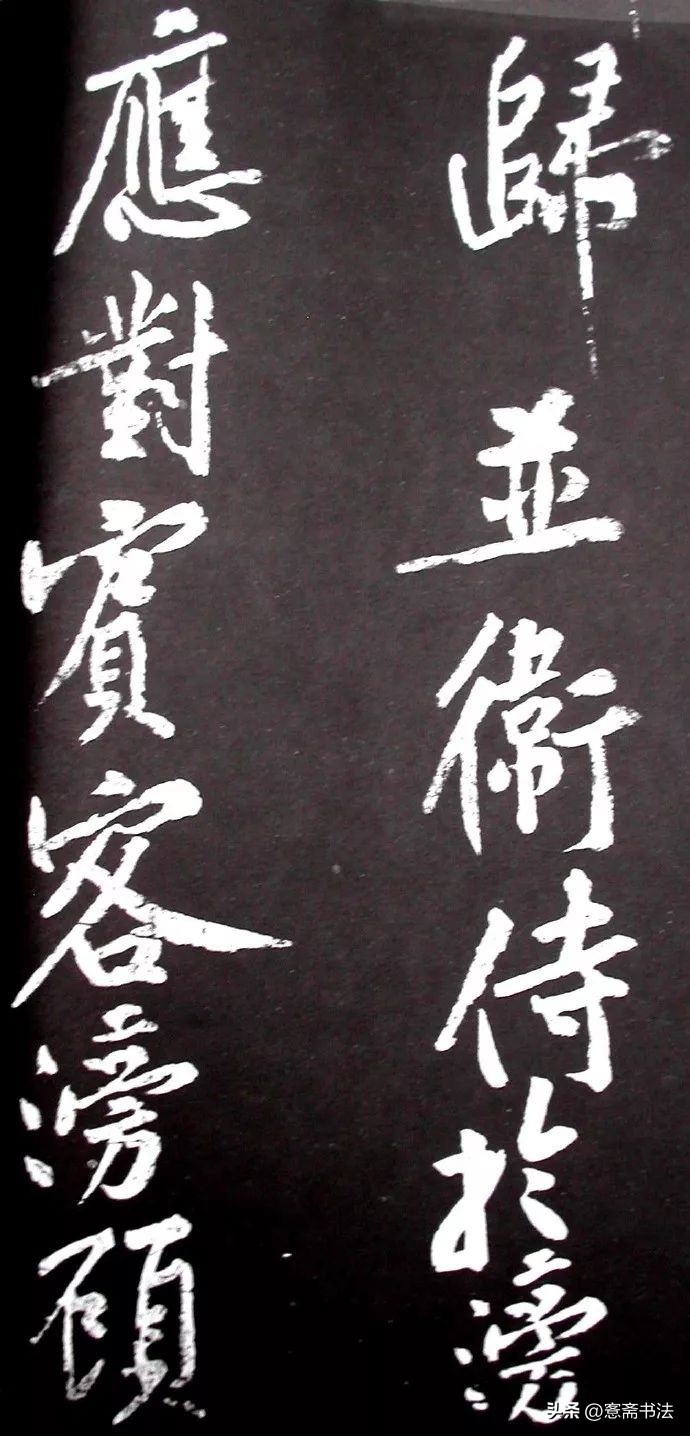 歸並衛侍於滂
應對賓客滂頋
头条@窓斋书法